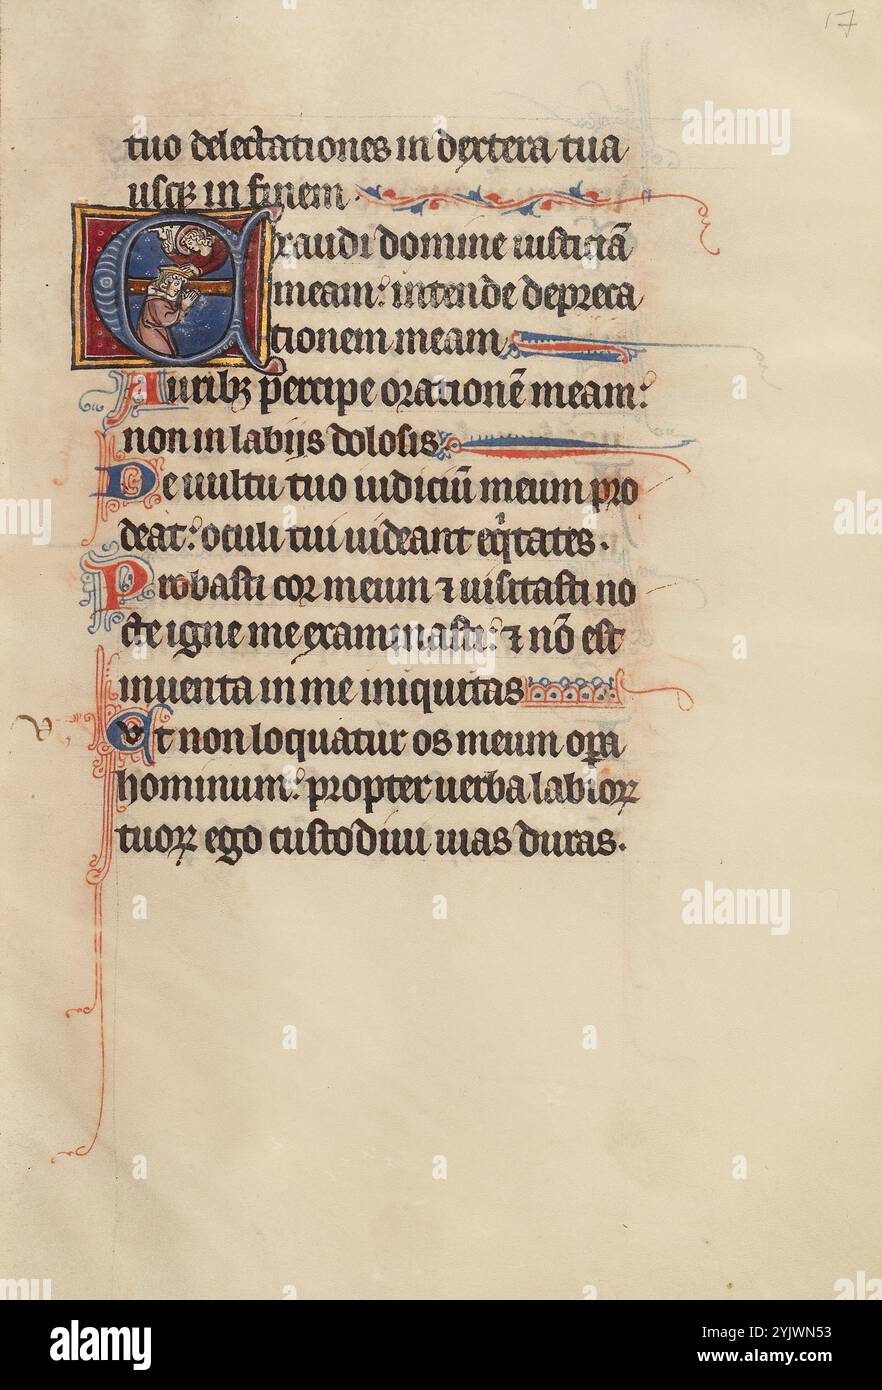 17
tuo delectationes in dextera tua
usqꝫ in finem.
Exaudi domine iusticiā
meam: intende depreca
tionem meam
Auribꝫ percipe orationē meam:
non in labiis dolosis.
De uultu tuo iudiciū meum pro
deat: oculi tui uideant eqͥtates.
Probasti cor meum ⁊ uisitasti no
cte igne me examinasti: ⁊ nō est
inuenta in me iniquitas
Ut non loquatur os meum oꝑa
hominum: propter uerba labioꝝ
tuoꝝ ego custodiui uias duras.
alamy
a
Image ID: 2YJWN53
www.alamy.com